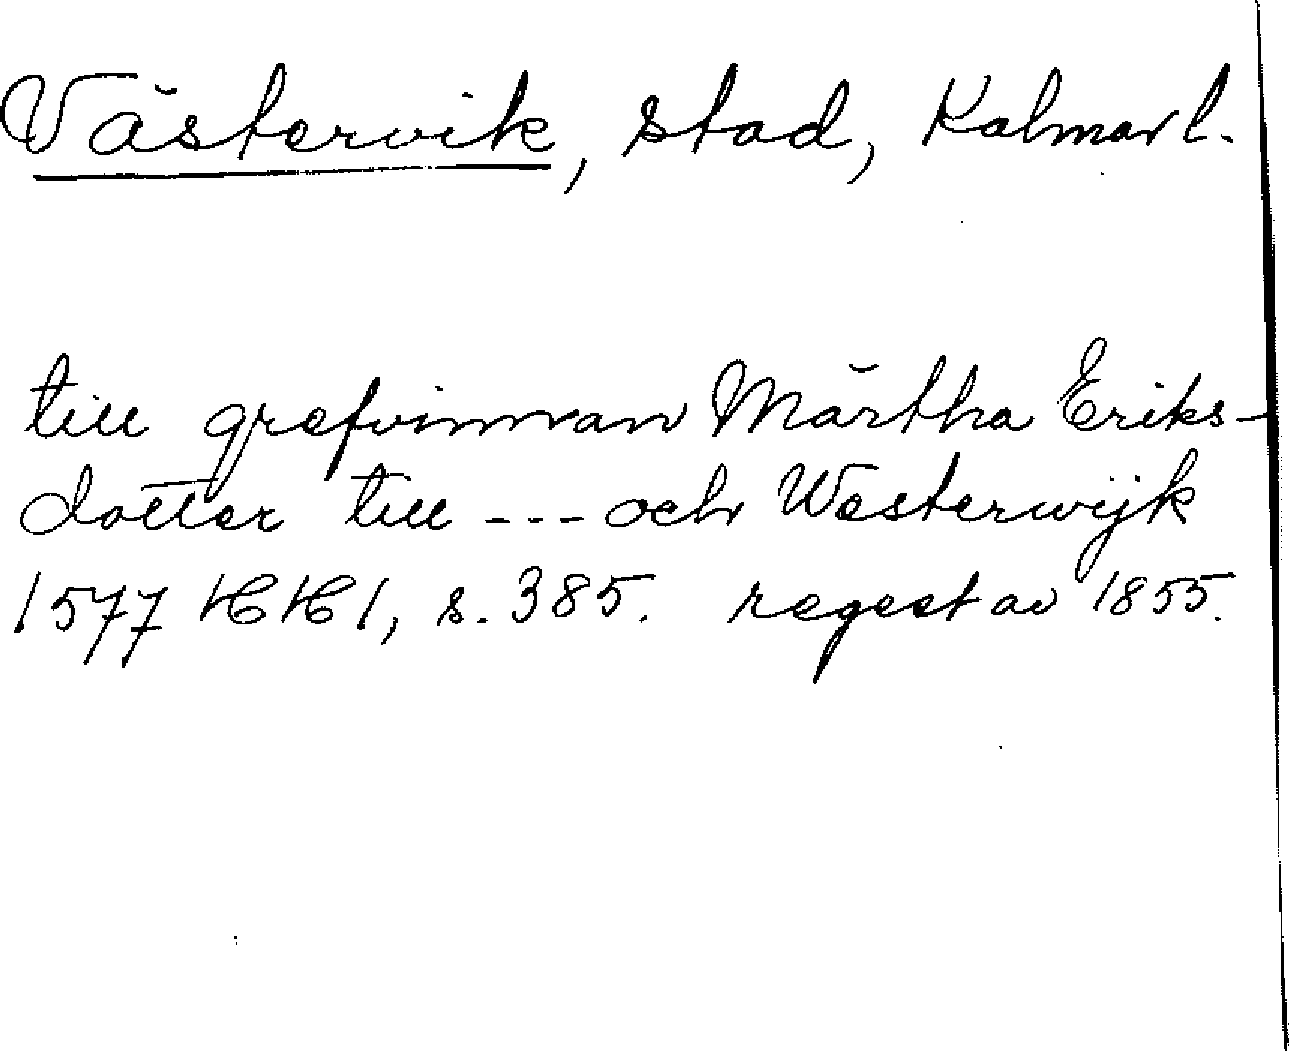 Västervik, stad, Kalmar l.
till grefvinnan Märtha Eriks-
dotter till --- och Westerwijk
1577 HH 1, s. 385. regest av 1855.